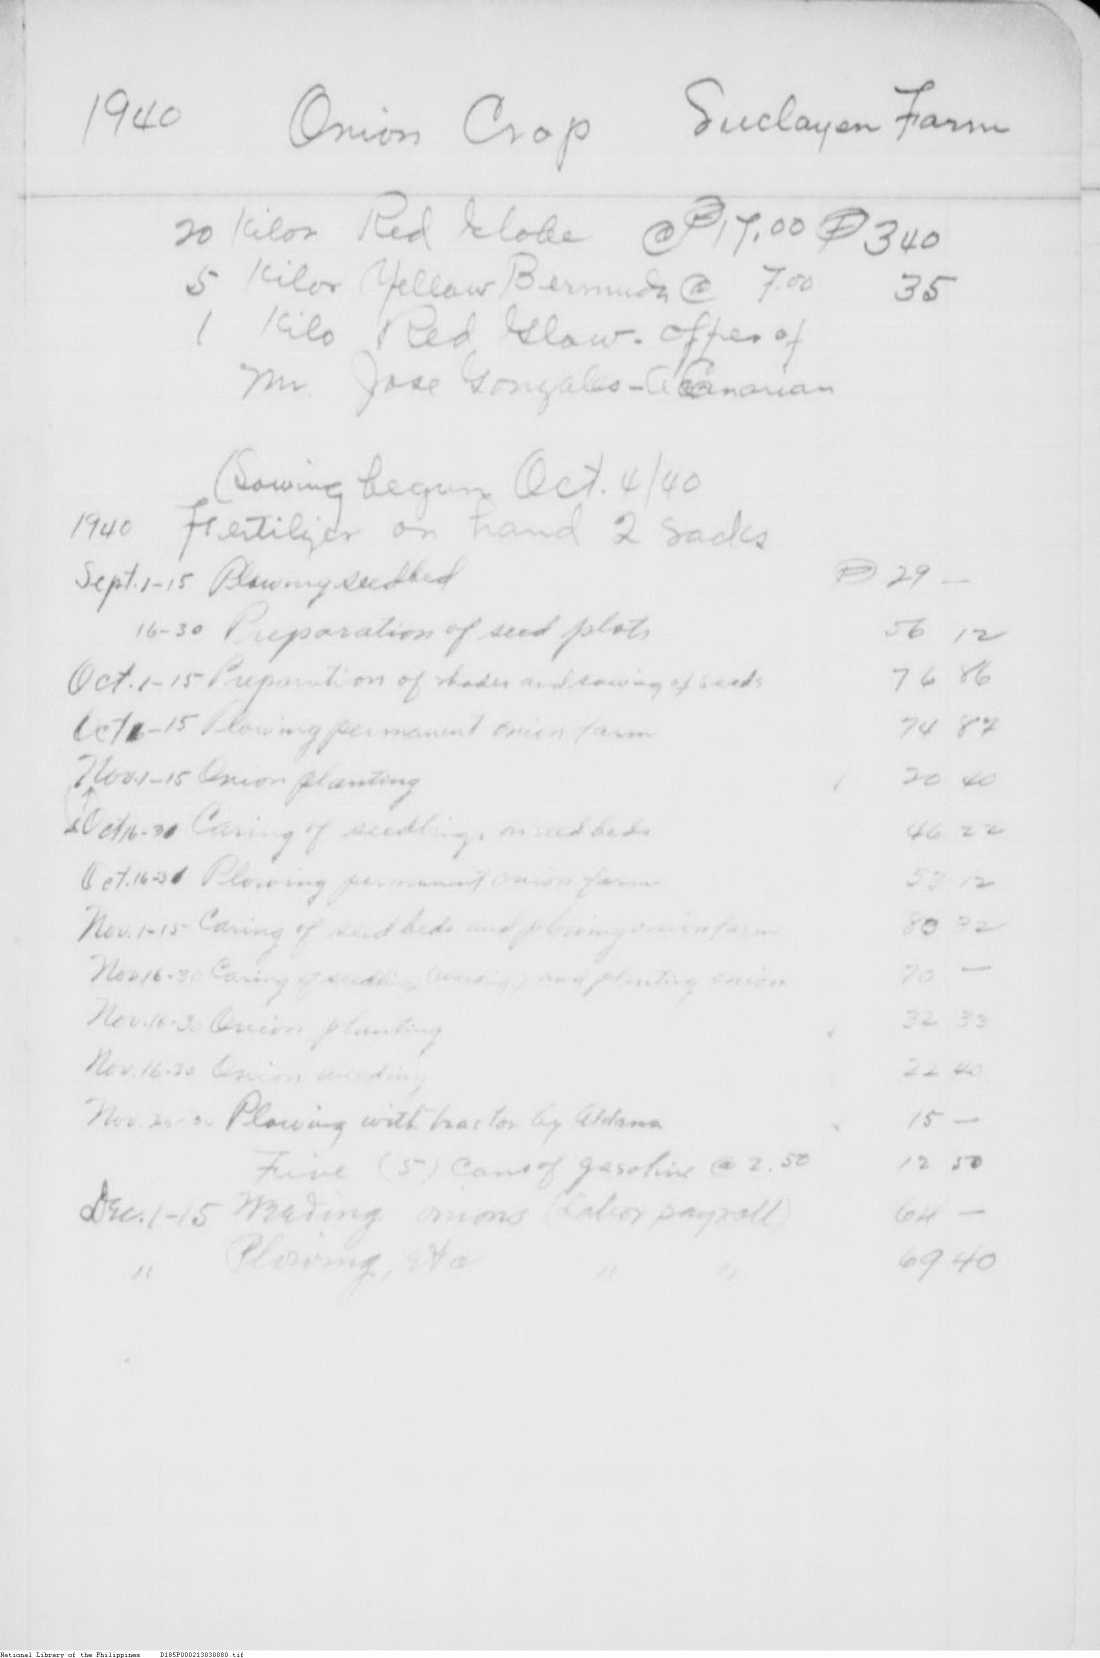 1940 Onion Crop Suclayen Farm
20 Kilos Red Globe @ ₱17.00 ₱340
5 Kilos Yellow Bermuda @ 7.00 35
1 Kilo Red Glow. offer of
Mr. Jose Gonzales - Canarian
(Sowing begun Oct. 4/40
1940 Fertilizer on hand 2 sacks
Sept. 1-15 Plowing seedbed ₱29 —
16-30 Preparation of seed plots 56 12
Oct. 1-15 Preparation of shades and sowing of seeds 76 86
Oct 1-15 Plowing permanent onion farm 74 87
Nov. 1-15 Onion planting 20 40
Oct 16-31 Caring of seedlings on seed beds 46 22
Oct. 16-31 Plowing permanent onion farm 53 12
Nov. 1-15 Caring of seed beds and plowing onion farm 80 32
Nov 16-30 Caring of seedling (weeding) and planting onion 70 —
Nov. 16-30 Onion planting 32 33
Nov. 16-30 Onion weeding 22 40
Nov. Plowing with tractor by Aldana 15 —
Five (5) cans of gasoline @ 2.50 12 50
Dec. 1-15 Weeding onions (Labor payroll) 64 —
" Plowing, etc " " 69 40
National Library of the Philippines D185P000213838880.tif